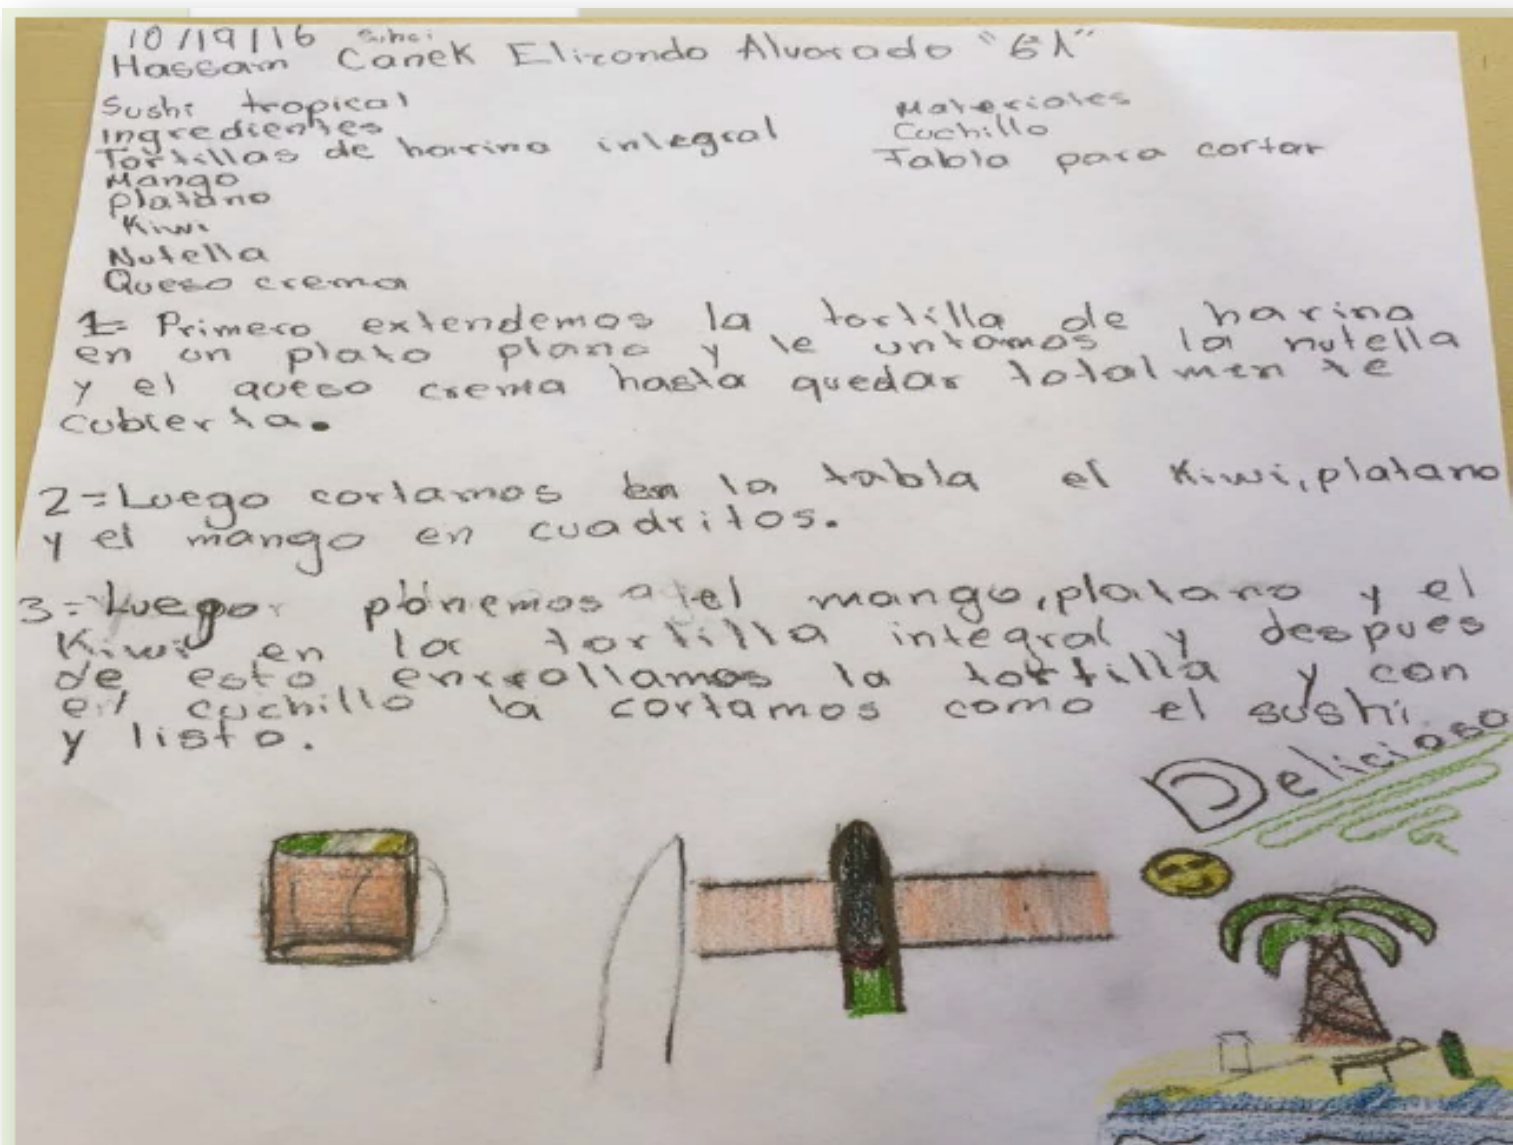 10/19/16
Hassam Canek Elizondo Alvarado "6A"
Sushi tropical
Ingredientes
Tortillas de harina integral
Mango
Platano
Kiwi
Nutella
Queso crema
Materiales
Cuchillo
Tabla para cortar
1= Primero extendemos la tortilla de harina
en un plato plano y le untamos la nutella
y el queso crema hasta quedar totalmente
cubierta.
2=Luego cortamos en la tabla el Kiwi, platano
y el mango en cuadritos.
3=Luego ponemos el mango, platano y el
Kiwi en la tortilla integral y despues
de esto enrrollamos la tortilla y con
el cuchillo la cortamos como el sushi
y listo.
Delicioso